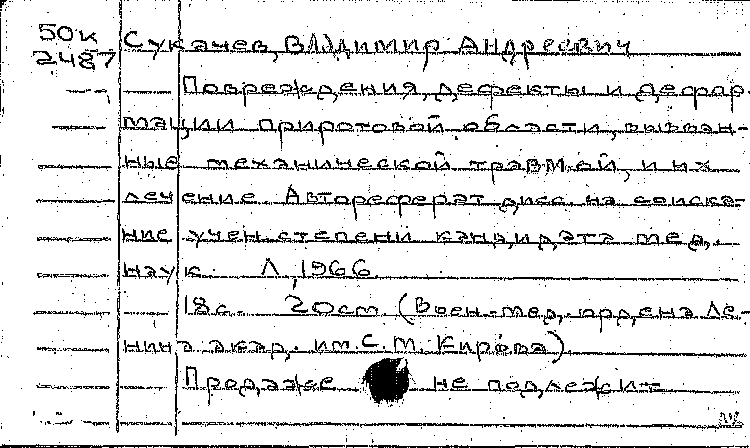 50к
2487
Сукачев, Владимир Андреевич
Повреждения, дефекты и дефор-
мации приротовой области, вызван-
ные механической травмой, и их
лечение Автореферат дисс. на соиска-
ние учен. степени кандидата мед.
наук. Л, 1966.
18с. 20см (Воен-мед. ордена Ле-
нина акад. им. С. М. Кирова).
Продаже не подлежит